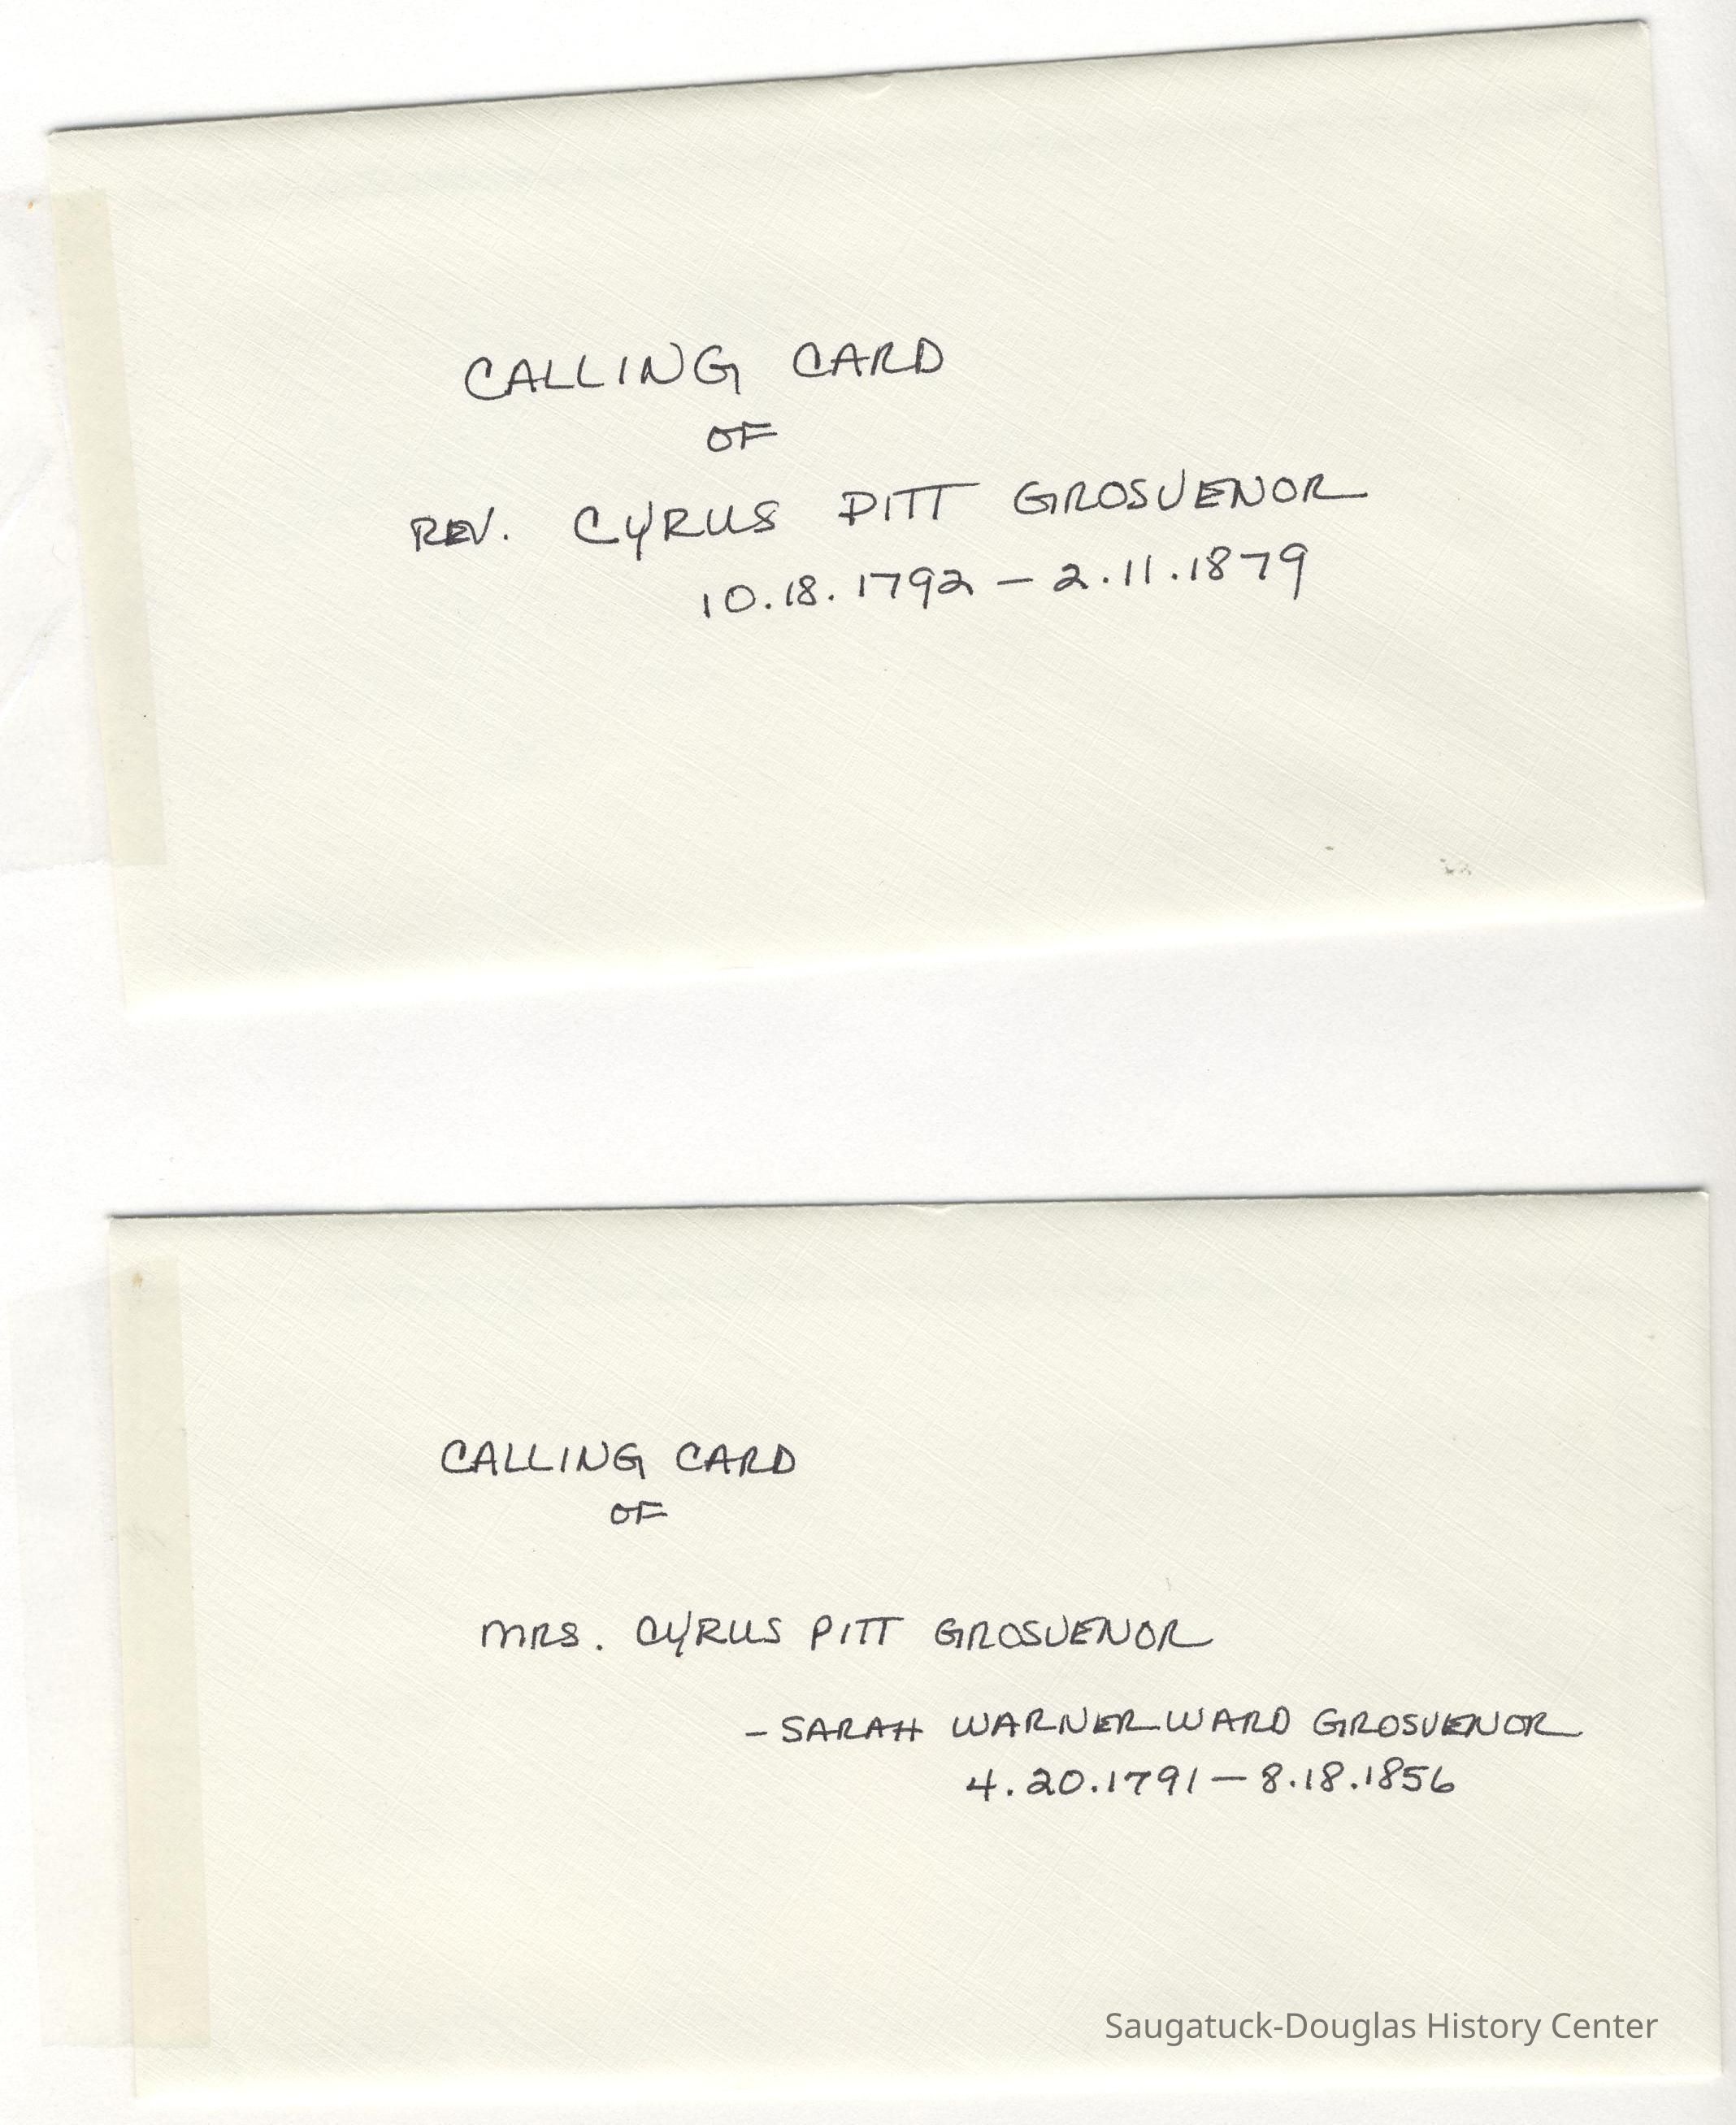 CALLING CARD
OF
REV. CYRUS PITT GROSVENOR
10.18.1792 - 2.11.1879
CALLING CARD
OF
MRS. CYRUS PITT GROSVENOR
- SARAH WARNER WARD GROSVENOR
4.20.1791 - 8.18.1856
Saugatuck-Douglas History Center